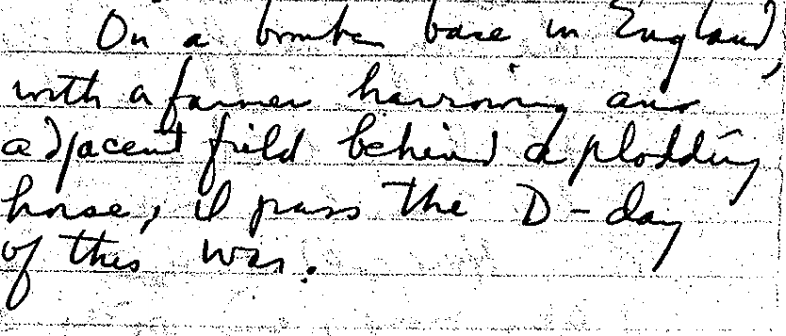 On a bomber base in England,
with a farmer harrowing an
adjacent field behind a plodding
horse, I pass the D-day
of this war.